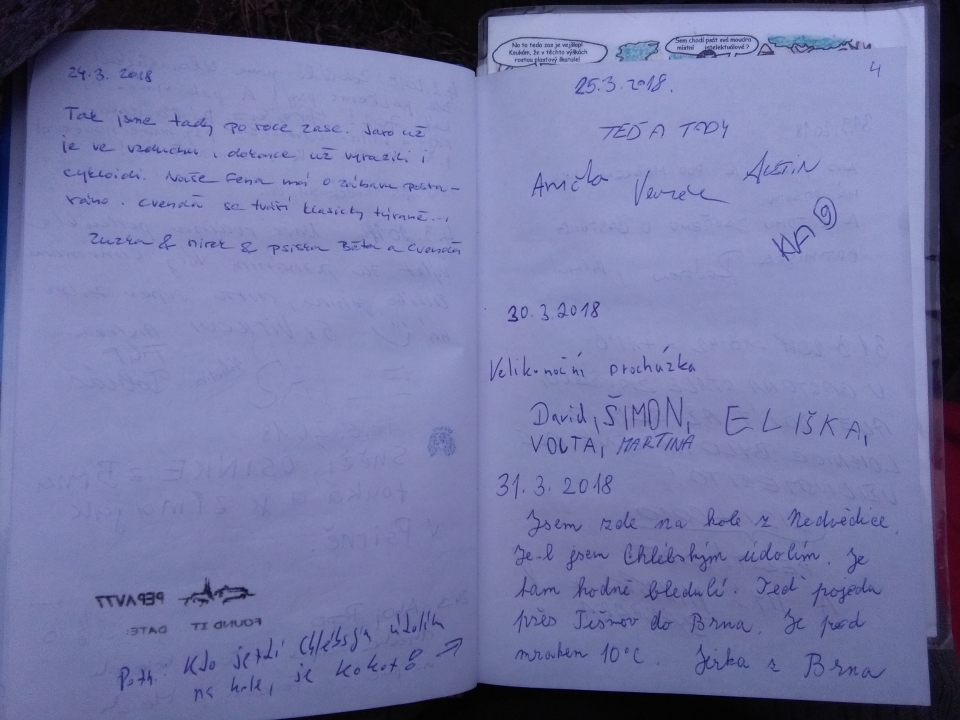 24.3. 2018
Tak jsme tady po roce zase. Jaro už
je ve vzduchu, dokonce už vyrazili i
cykloidi. Naše fena má o zábavu posta-
ráno. Cvenda se tváří klasicky týraně...
Zuzka & Mirek & psiska Běta a Cvenda
PEPAV77
FOUND IT
DATE:
Pozn. Kdo jezdí Chlébským údolím
na kole, je kokot!
No to teda zas je vejšlap!
Koukám, že v těchto výškách
rostou plastový škatule!
Sem chodí psát svá moudra
místní intelektuálové?
4
25.3.2018.
TEĎ A TADY
Anička
AUSTIN
KVA 9
30.3.2018
Velikonoční procházka
David, ŠIMON, ELIŠKA,
VOLTA, MARTINA
31.3.2018
Jsem zde na kole z Nedvědice.
Je-l jsem Chlébským údolím. Je
tam hodně bledulí. Teď pojedu
přes Tišnov do Brna. Je pod
mrakem 10°C. Jirka z Brna